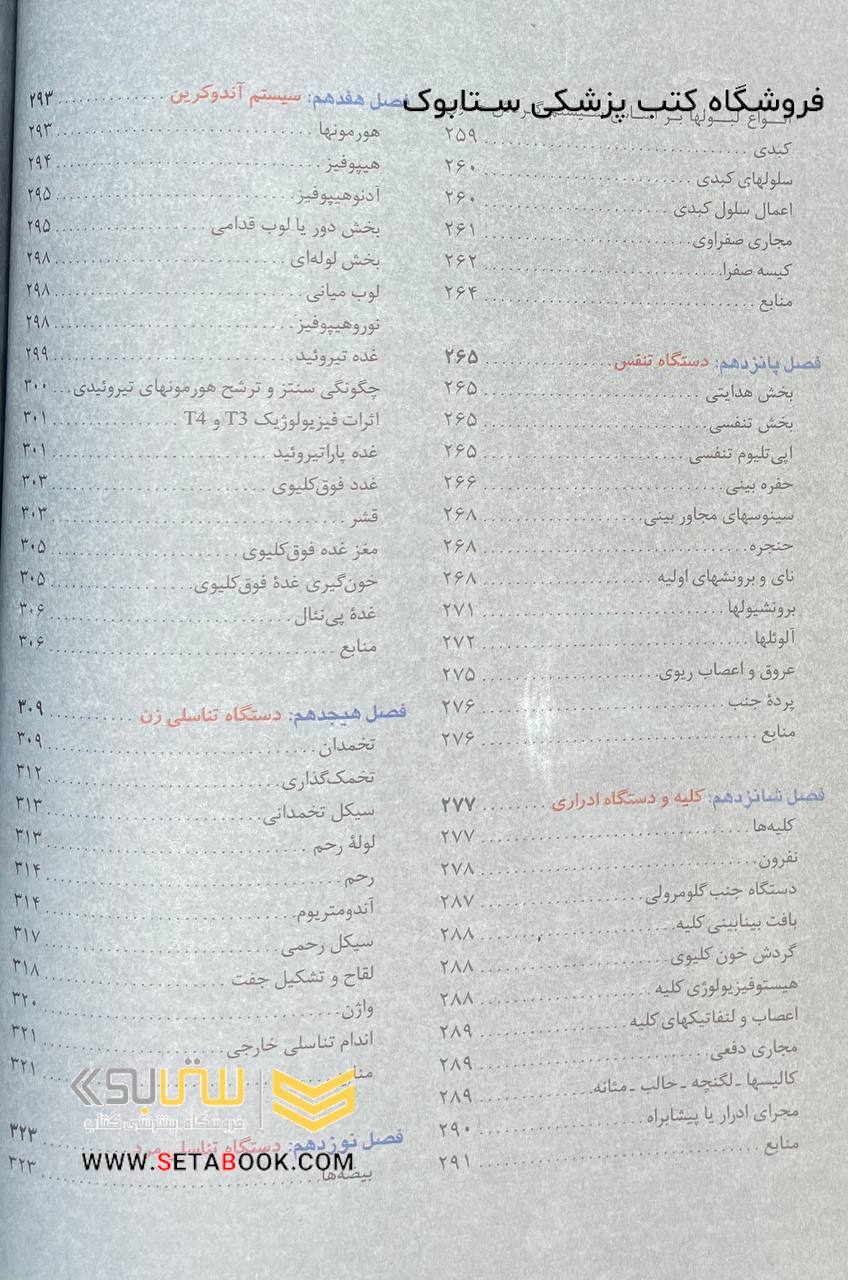 فروشگاه کتب پزشکی ستابوک
انواع لبولها بر اساس سیستم گردش
کبدی ........ ۲۵۹
سلولهای کبدی ........ ۲۶۰
اعمال سلول کبدی ........ ۲۶۰
مجاری صفراوی ........ ۲۶۱
کیسه صفرا ........ ۲۶۲
منابع ........ ۲۶۴
فصل پانزدهم: دستگاه تنفس ........ ۲۶۵
بخش هدایتی ........ ۲۶۵
بخش تنفسی ........ ۲۶۵
اپی‌تلیوم تنفسی ........ ۲۶۵
حفره بینی ........ ۲۶۶
سینوسهای مجاور بینی ........ ۲۶۸
حنجره ........ ۲۶۸
نای و برونشهای اولیه ........ ۲۶۸
برونشیولها ........ ۲۷۱
آلوئلها ........ ۲۷۲
عروق و اعصاب ریوی ........ ۲۷۵
پردۀ جنب ........ ۲۷۶
منابع ........ ۲۷۶
فصل شانزدهم: کلیه و دستگاه ادراری ........ ۲۷۷
کلیه‌ها ........ ۲۷۷
نفرون ........ ۲۷۸
دستگاه جنب گلومرولی ........ ۲۸۷
بافت بینابینی کلیه ........ ۲۸۸
گردش خون کلیوی ........ ۲۸۸
هیستوفیزیولوژی کلیه ........ ۲۸۸
اعصاب و لنفاتیکهای کلیه ........ ۲۸۹
مجاری دفعی ........ ۲۸۹
کالیسها ـ لگنچه ـ حالب ـ مثانه ........ ۲۸۹
مجرای ادرار یا پیشابراه ........ ۲۹۰
منابع ........ ۲۹۱
فصل هفدهم: سیستم آندوکرین ........ ۲۹۳
هورمونها ........ ۲۹۳
هیپوفیز ........ ۲۹۴
آدنوهیپوفیز ........ ۲۹۵
بخش دور یا لوب قدامی ........ ۲۹۵
بخش لوله‌ای ........ ۲۹۸
لوب میانی ........ ۲۹۸
نوروهیپوفیز ........ ۲۹۸
غده تیروئید ........ ۲۹۹
چگونگی سنتز و ترشح هورمونهای تیروئیدی ... ۳۰۰
اثرات فیزیولوژیک T3 و T4 ........ ۳۰۱
غده پاراتیروئید ........ ۳۰۱
غدد فوق‌کلیوی ........ ۳۰۳
قشر ........ ۳۰۳
مغز غده فوق‌کلیوی ........ ۳۰۵
خون‌گیری غدۀ فوق‌کلیوی ........ ۳۰۵
غدۀ پی‌نئال ........ ۳۰۶
منابع ........ ۳۰۶
فصل هیجدهم: دستگاه تناسلی زن ........ ۳۰۹
تخمدان ........ ۳۰۹
تخمک‌گذاری ........ ۳۱۲
سیکل تخمدانی ........ ۳۱۳
لولۀ رحم ........ ۳۱۳
رحم ........ ۳۱۴
آندومتریوم ........ ۳۱۴
سیکل رحمی ........ ۳۱۷
لقاح و تشکیل جفت ........ ۳۱۸
واژن ........ ۳۲۰
اندام تناسلی خارجی ........ ۳۲۱
منابع ........ ۳۲۱
فصل نوزدهم: دستگاه تناسلی مرد ........ ۳۲۳
بیضه‌ها ........ ۳۲۳
ستابوک
فروشگاه اینترنتی کتاب
WWW.SETABOOK.COM